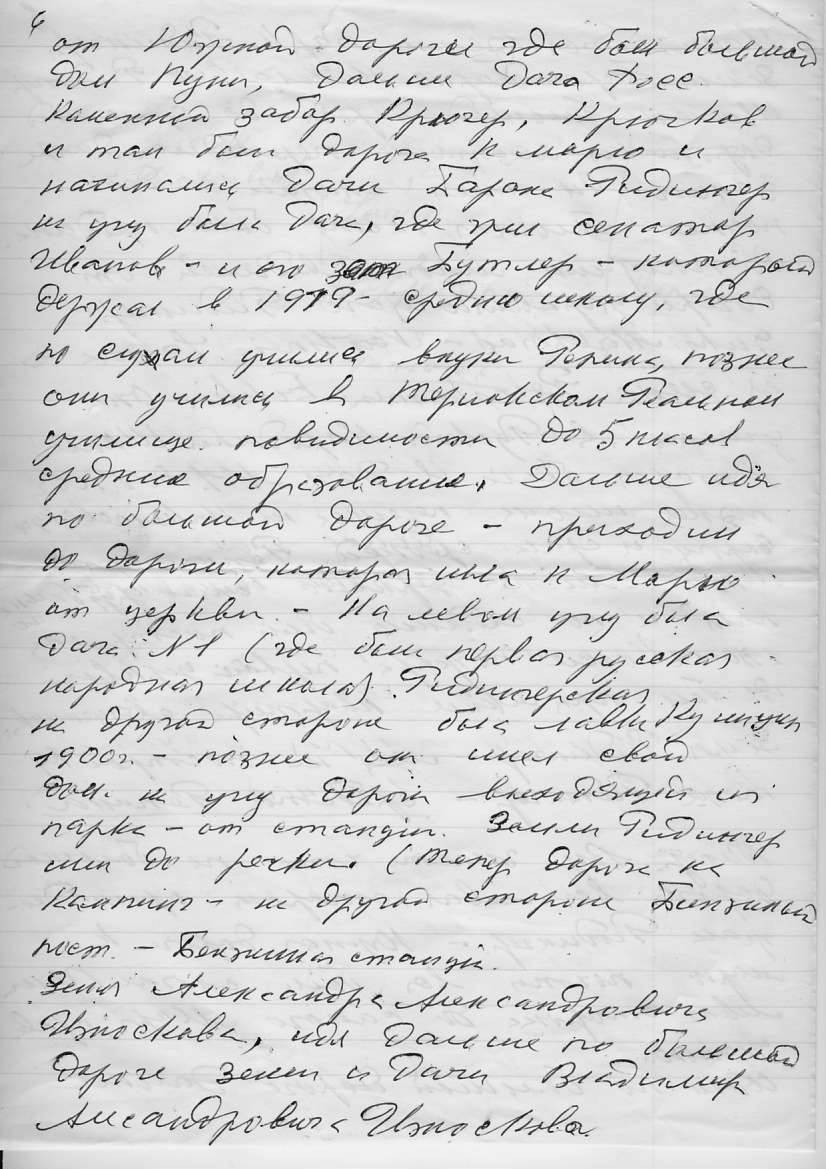 6
от Южной дороги где был большой
дом Пуни, Дальше Дача Фосс.
Каменный забор. Крюгер, Крючков
и там был дорога к морю и
начинались Дачи Барона Ридингер
на углу была Дача, где жил сенатор
Иванов - и его зять Бутлер - который
держал в 1919 - среднюю школу, где
по учились внуки Репина, позднее
они учились в Териокском Реальном
училище. повидимости до 5 класов
средние образование. Дальше идя
по большой дороге - приходим
до дороги, которая шла к Морю
от церкви. - На левом углу была
Дача N1 (где была первая русская
народная школа) Ридингерская
на другой стороне была лавка
1900г. - позднее он имел свой
дом. на углу дороги выходящей из
парка - от станции. Земли Ридингер
шли до речки. (Тепер дорога на
Кемпинг - на другой стороне Бензиный
пост. - Бензинная станция.
Земля Александра Александровича
Износкова, идя Дальше по большой
дороге земли и Дачи Владимир
Алсандровича Износкова.